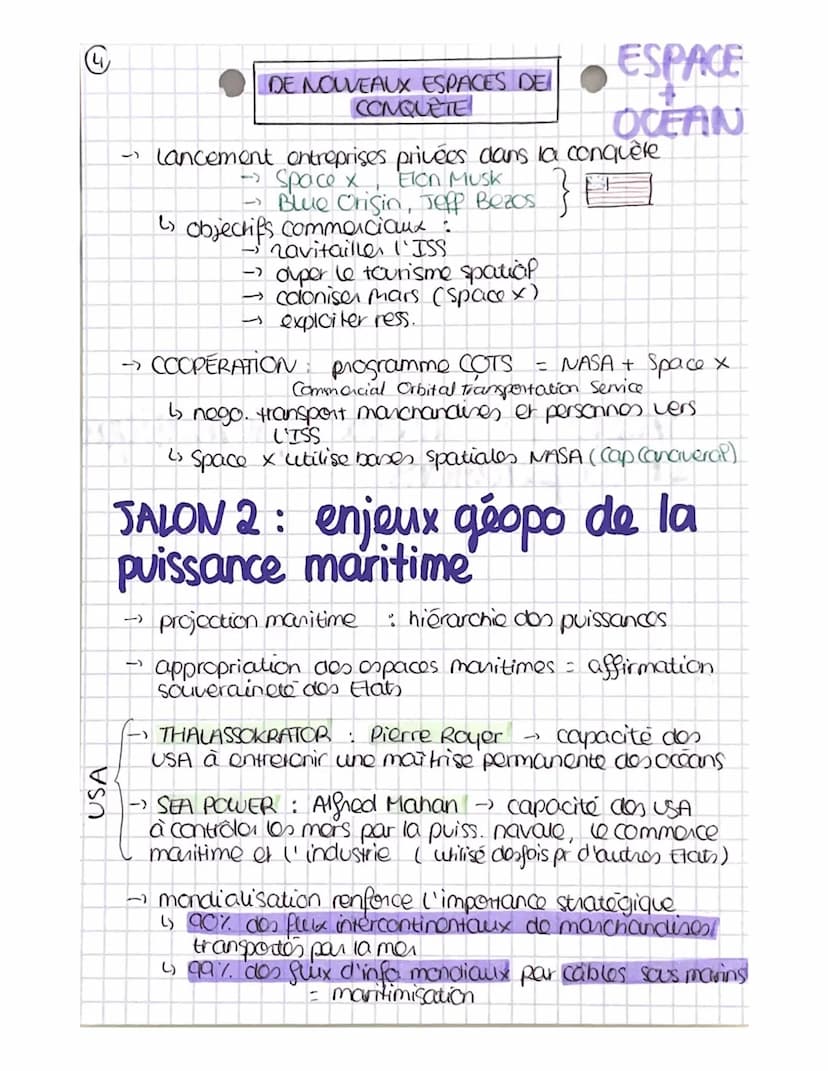 4
DE NOUVEAUX ESPACES DE
CONQUÊTE
ESPACE
+
OCÉAN
→ lancement entreprises privées dans la conquête
→ Space X, Elon Musk
→ Blue Origin, Jeff Bezos
↳ objectifs commerciaux :
→ ravitailler l'ISS
→ dvper le tourisme spatial
→ coloniser Mars (Space X)
→ exploiter ress.
→ COOPÉRATION : programme COTS = NASA + Space X
Commercial Orbital Transportation Service
↳ négo. transport marchandises et personnes vers
L'ISS
↳ Space X utilise bases spatiales NASA (Cap Canaveral)
JALON 2 : enjeux géopo de la
puissance maritime
→ projection maritime : hiérarchie des puissances
→ appropriation des espaces maritimes = affirmation
souveraineté des Etats
USA
→ THALASSOKRATOR : Pierre Royer → capacité des
USA à entretenir une maîtrise permanente des océans
→ SEA POWER : Alfred Mahan → capacité des USA
à contrôler les mers par la puiss. navale, le commerce
maritime et l'industrie (utilisé desfois pr d'autres Etats)
→ mondialisation renforce l'importance stratégique
↳ 90% des flux intercontinentaux de marchandises
transportés par la mer
↳ 99% des flux d'info mondiaux par câbles sous marins
= maritimisation